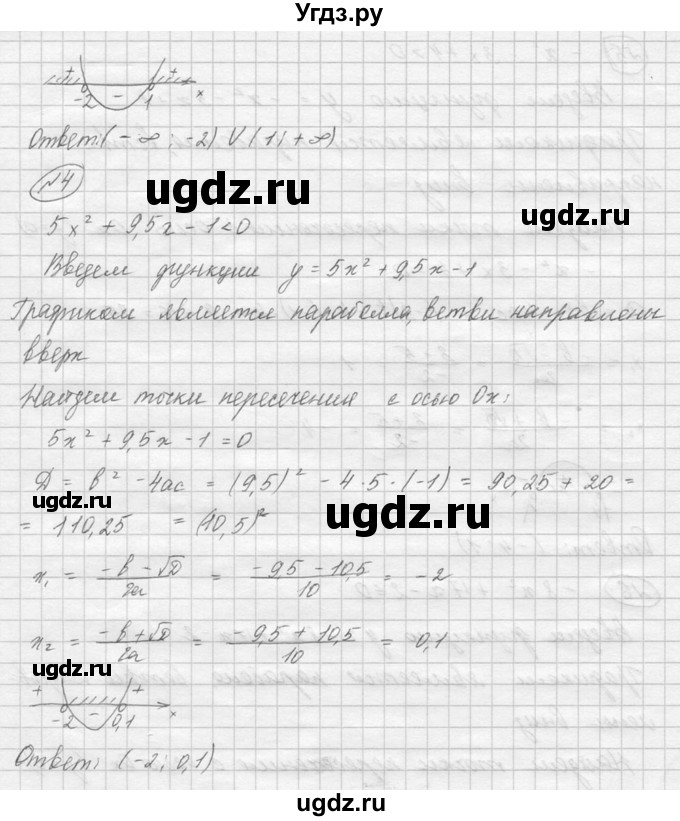 Угдз.ру
+ +
-2 - 1 x
Ответ: (-∞; -2) ∪ (1; +∞)
№4
ugdz.ru
5x² + 9,5x - 1 < 0
Введем функции y = 5x² + 9,5x - 1
Графиком является парабелла, ветви направлены
вверх
Найдем точки пересечения с осью Ox:
5x² + 9,5x - 1 = 0
Д = b² - 4ac = (9,5)² - 4·5·(-1) = 90,25 + 20 =
= 110,25 = (10,5)²
ugdz.ru ugdz.ru
x₁ = (-b - √Д)/2a = (-9,5 - 10,5)/10 = -2
x₂ = (-b + √Д)/2a = (-9,5 + 10,5)/10 = 0,1
+ +
-2 - 0,1 x
Ответ: (-2; 0,1)
ugdz.ru
ugdz.ru